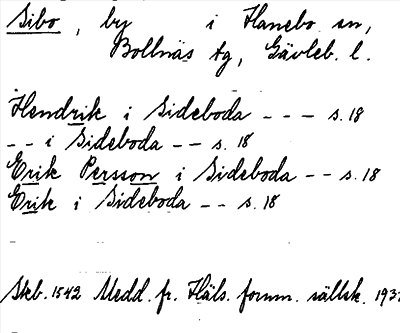 Sibo, by i Hanebo sn,
Bollnäs tg, Gävleb. l.
Hendrik i Sideboda - - - s. 18
- - i Sideboda - - s. 18
Erik Persson i Sideboda - - s. 18
Erik i Sideboda - - s. 18
Skb. 1542 Medd. fr. Häls. fornm. sällsk. 193